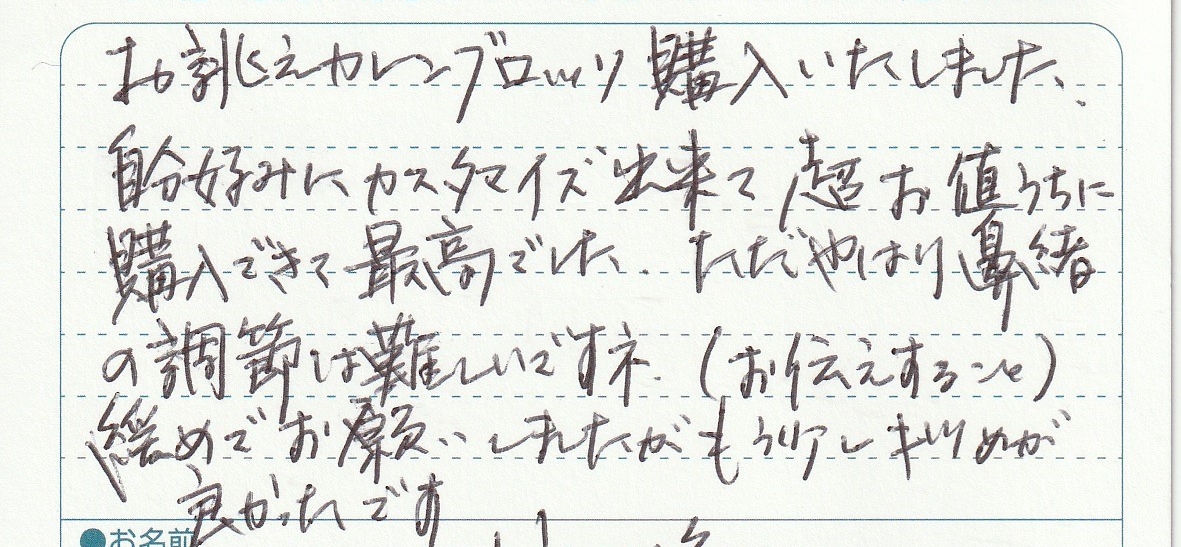 お誂えカレンブロッソ購入いたしました、
自分好みにカスタマイズ出来て超お値うちに
購入できて最高でした. ただやはり鼻緒
の調節は難しいですネ. (お伝えすること)
緩めでお願いしましたがもう少しキツめが
良かったです
●お名前